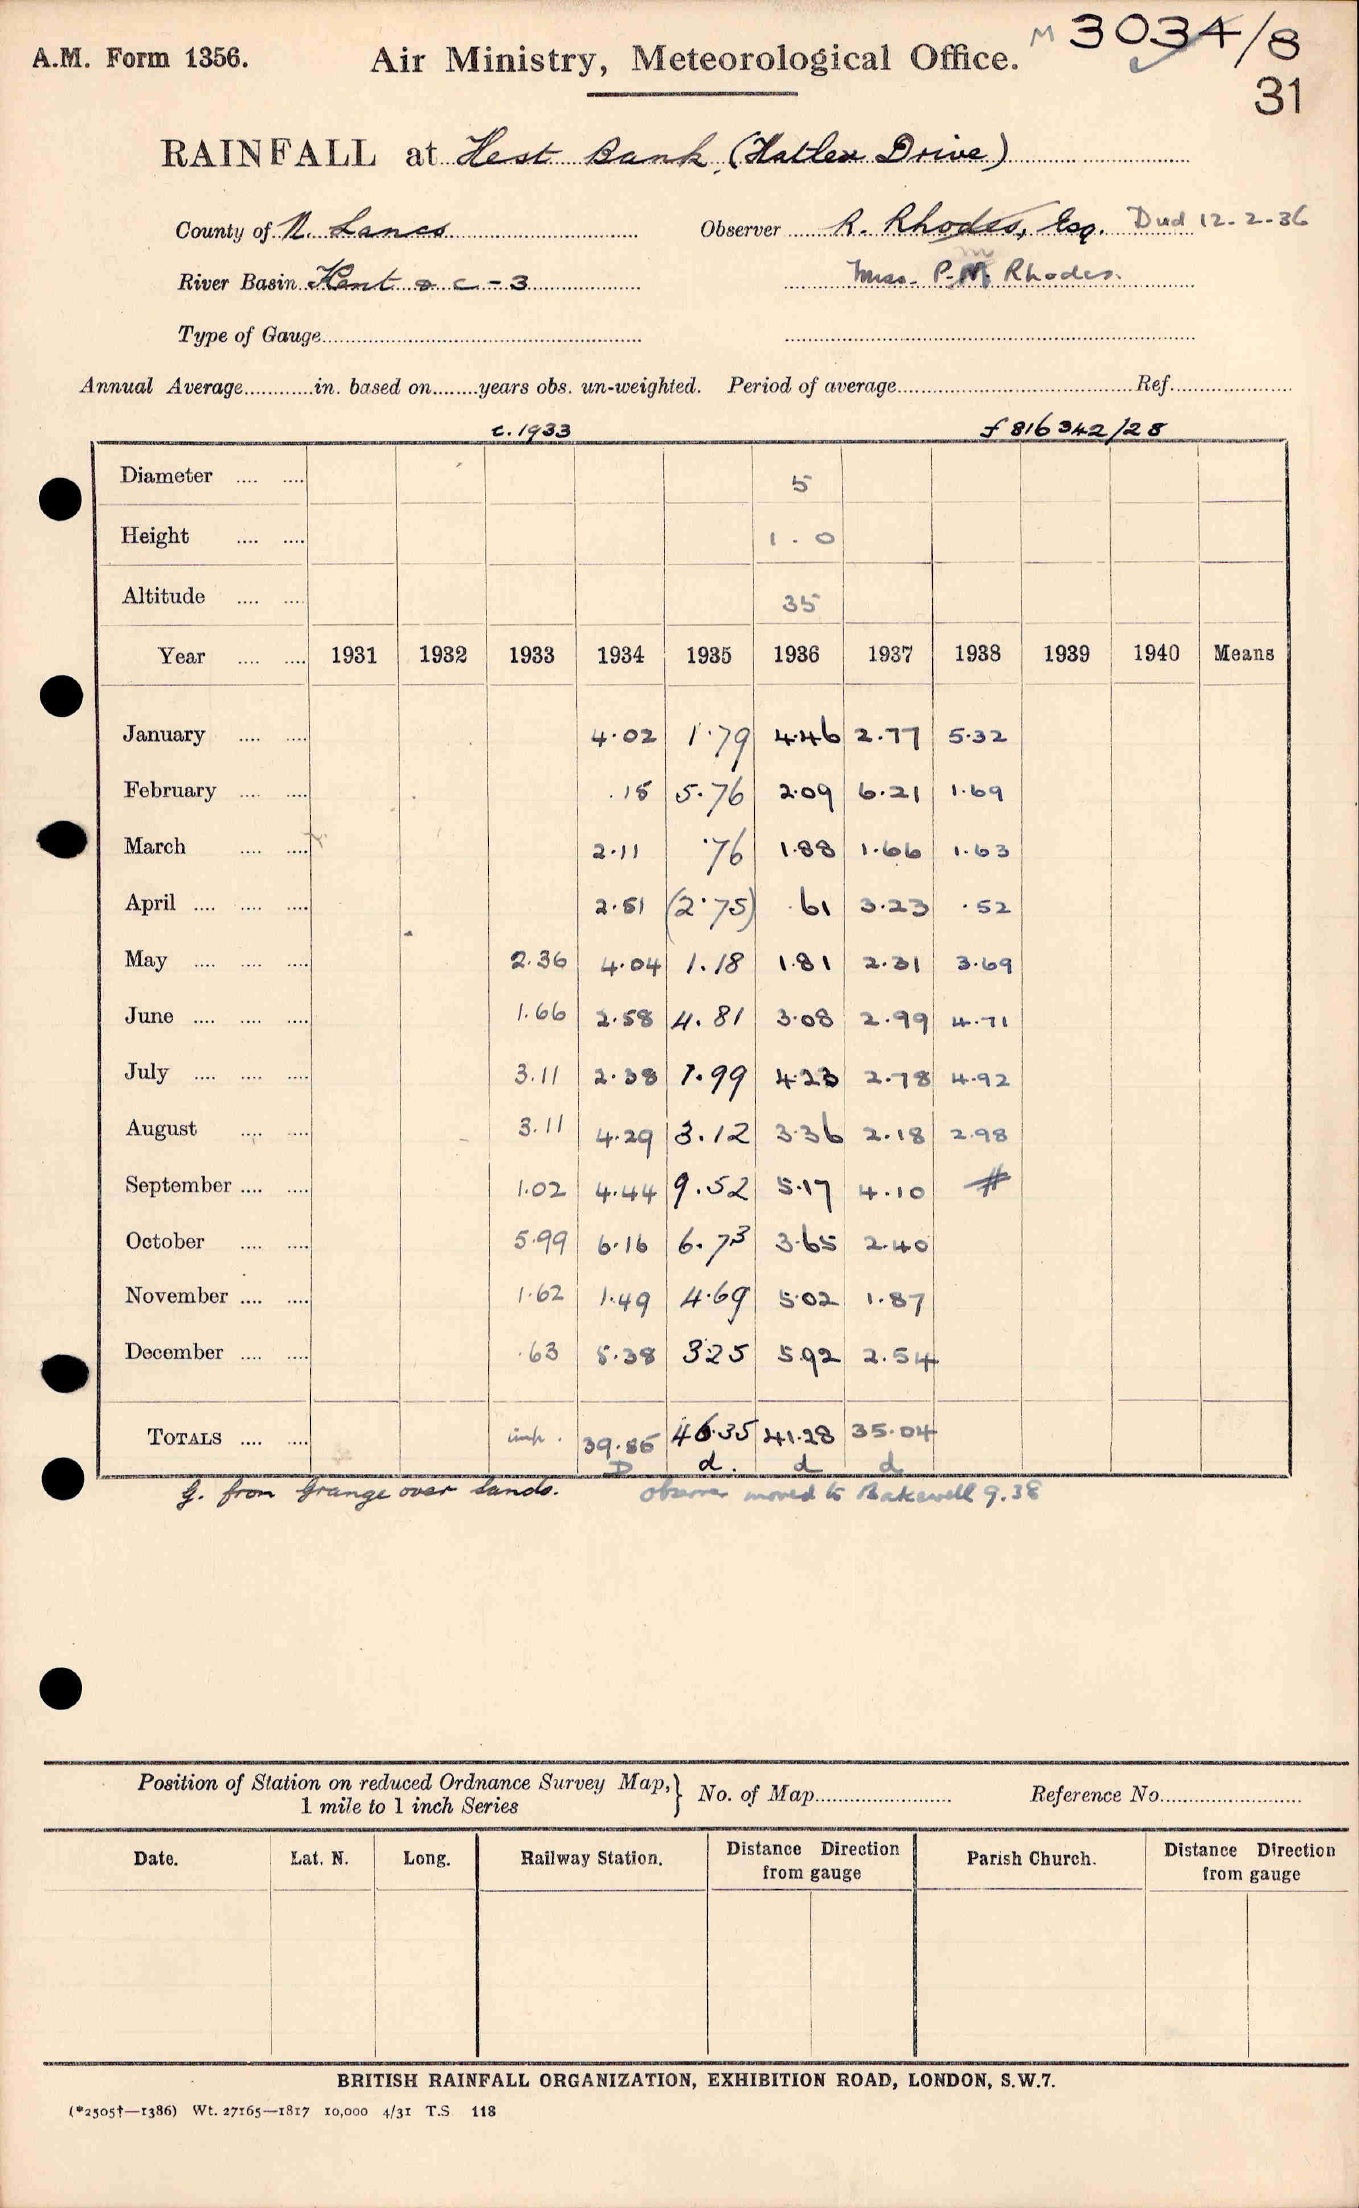 M 3034/8
A.M. Form 1356. Air Ministry, Meteorological Office.
31
RAINFALL at Hest Bank, (Hatlex Drive)
County of N. Lancs Observer R. Rhodes, Esq. Died 12-2-36
River Basin Kent & c - 3 Miss P.M. Rhodes.
Type of Gauge
Annual Average in. based on years obs. un-weighted. Period of average Ref
c.1933 f 816342/28
Diameter 5
Height 1.0
Altitude 35
Year 1931 1932 1933 1934 1935 1936 1937 1938 1939 1940 Means
January 4.02 1.79 4.46 2.77 5.32
February .15 5.76 2.09 6.21 1.69
March 2.11 .76 1.88 1.66 1.63
April 2.51 (2.75) .61 3.23 .52
May 2.36 4.04 1.18 1.81 2.31 3.69
June 1.66 2.58 4.81 3.08 2.99 4.71
July 3.11 2.38 1.99 4.23 2.78 4.92
August 3.11 4.29 3.12 3.36 2.18 2.98
September 1.02 4.44 9.52 5.17 4.10 #
October 5.99 6.16 6.73 3.65 2.40
November 1.62 1.49 4.69 5.02 1.87
December .63 5.38 3.25 5.92 2.54
TOTALS imp. 39.55 46.35 41.28 35.04
D d. d d
G. from Grange over Sands. observer moved to Bakewell 9.38
Position of Station on reduced Ordnance Survey Map,} No. of Map Reference No
1 mile to 1 inch Series
Date. Lat. N. Long. Railway Station. Distance from gauge Direction Parish Church. Distance from gauge Direction
BRITISH RAINFALL ORGANIZATION, EXHIBITION ROAD, LONDON, S.W.7.
(*2505†—1386) Wt. 27165—1817 10,000 4/31 T.S 118